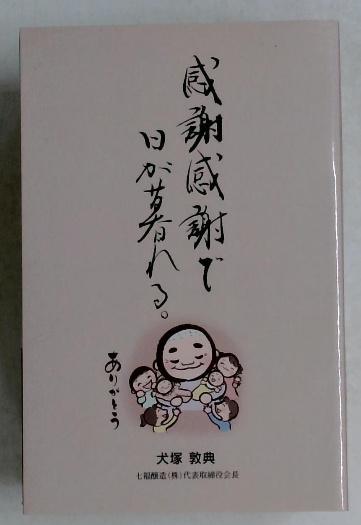 感謝感謝で
日が暮れる。
ありがとう
犬塚 敦典
七福醸造(株)代表取締役会長